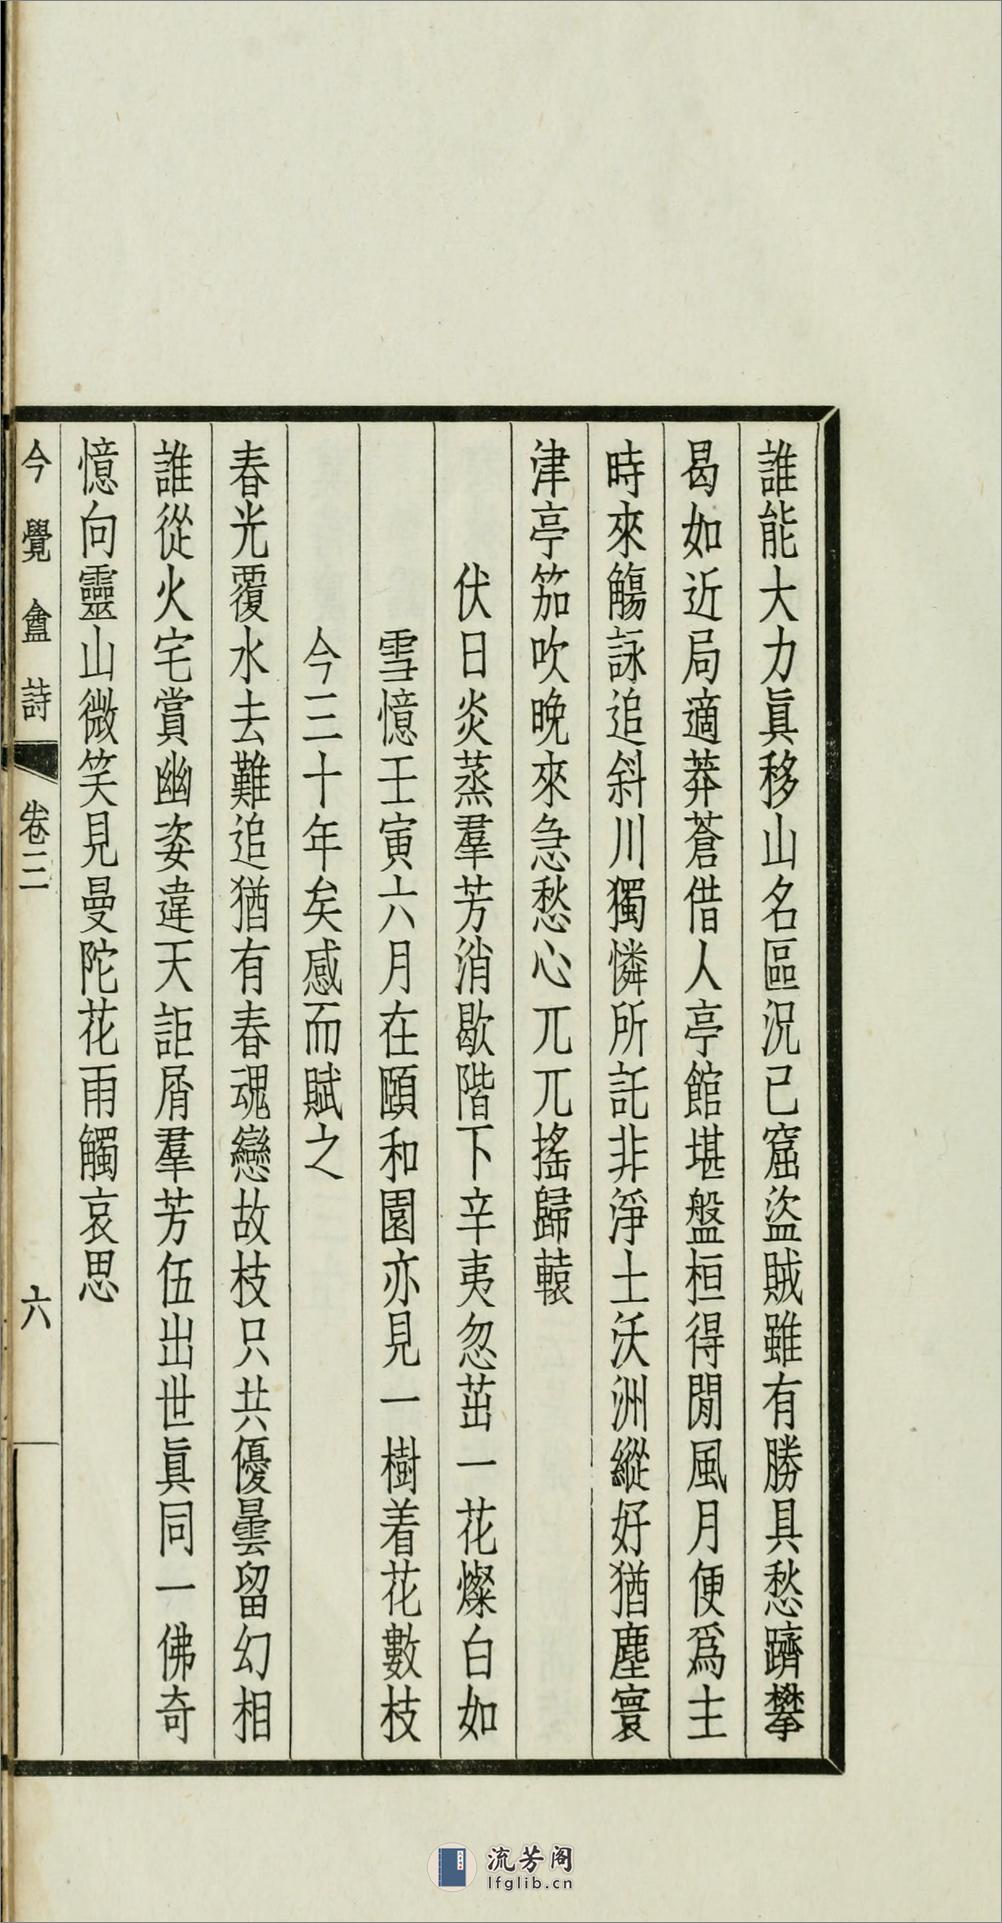 誰能大力眞移山名區況已窟盜賊雖有勝具愁躋攀
曷如近局適莽蒼借人亭館堪盤桓得閒風月便爲主
時來觴詠追斜川獨憐所託非淨土沃洲縱好猶塵寰
津亭笳吹晚來急愁心兀兀搖歸轅
伏日炎蒸羣芳消歇階下辛夷忽茁一花燦白如
雪憶壬寅六月在頤和園亦見一樹着花數枝
今三十年矣感而賦之
春光覆水去難追猶有春魂戀故枝只共優曇留幻相
誰從火宅賞幽姿違天詎屑羣芳伍出世眞同一佛奇
憶向靈山微笑見曼陀花雨觸哀思
今覺盦詩
卷三
六
流芳阁
lfglib.cn